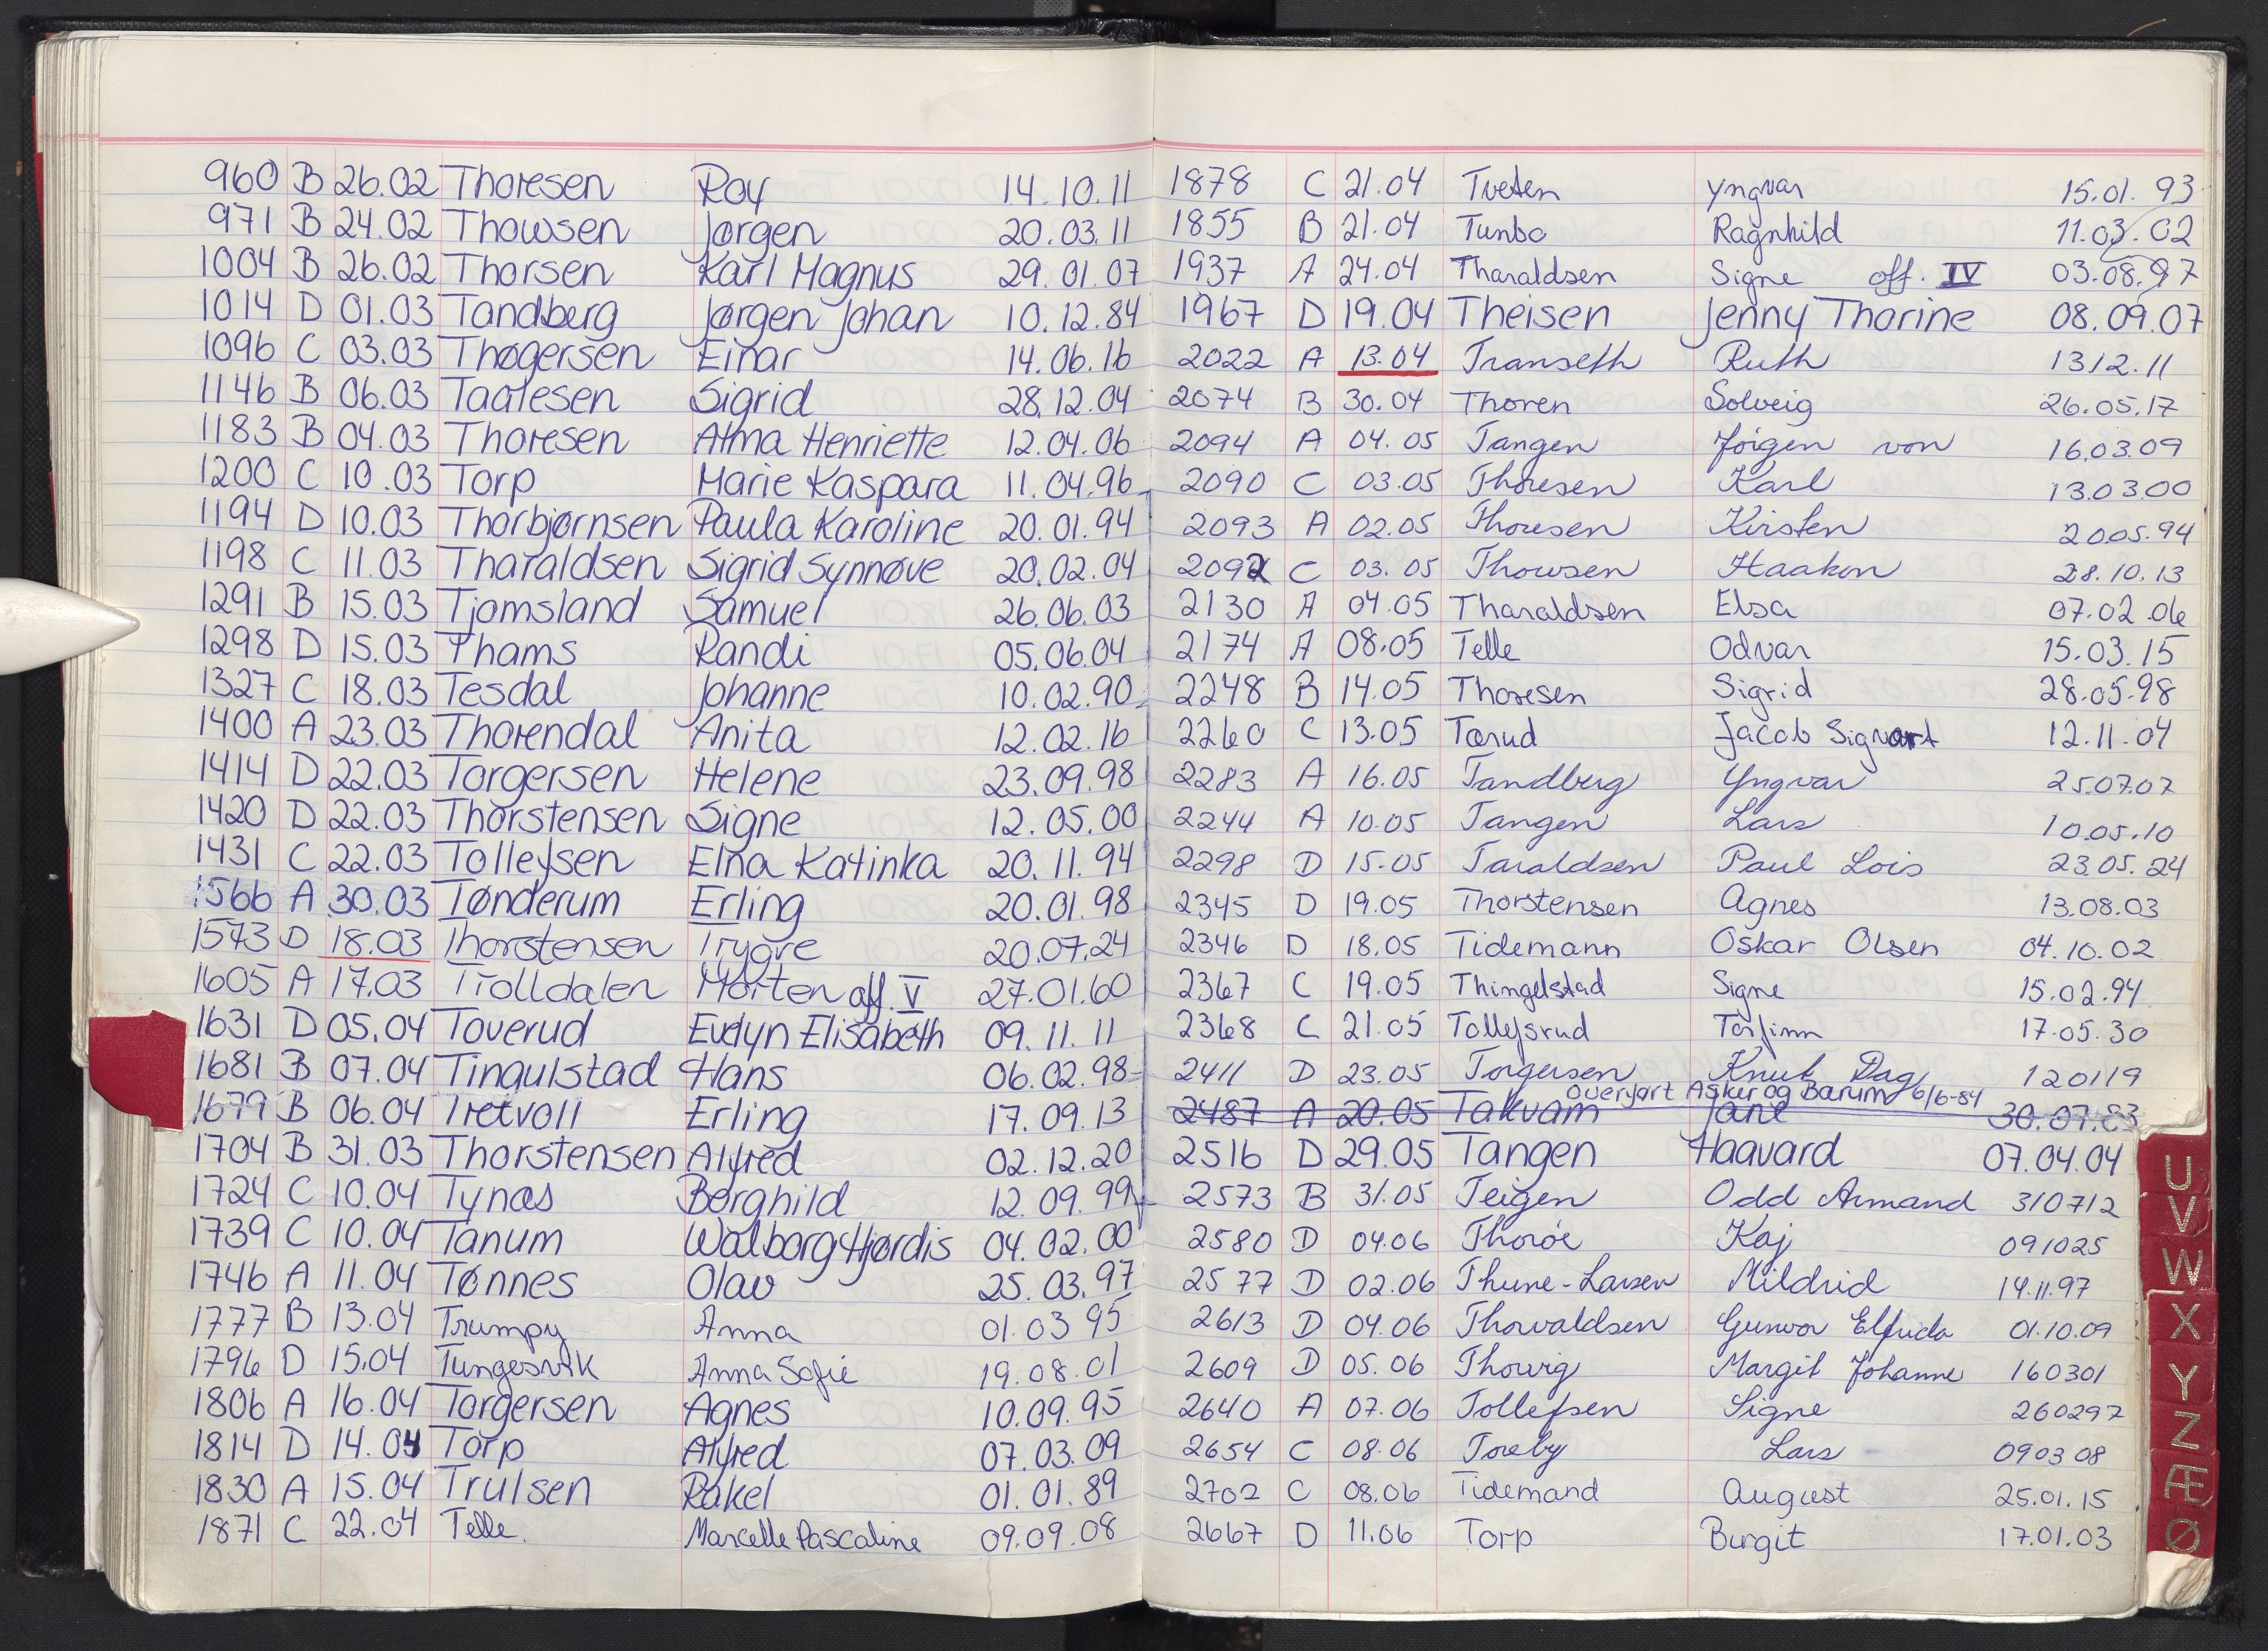 960 B 26.02 Thoresen Roy 14.10.11
971 B 24.02 Thowsen Jørgen 20.03.11
1004 B 26.02 Thorsen Karl Magnus 29.01.07
1014 D 01.03 Tandberg Jørgen Johan 10.12.84
1096 C 03.03 Thøgersen Einar 14.06.16
1146 B 06.03 Taalesen Sigrid 28.12.04
1183 B 04.03 Thoresen Alma Henriette 12.04.06
1200 C 10.03 Torp Marie Kaspara 11.04.96
1194 D 10.03 Thorbjørnsen Paula Karoline 20.01.94
1198 C 11.03 Tharaldsen Sigrid Synnøve 20.02.04
1291 B 15.03 Tjomsland Samuel 26.06.03
1298 D 15.03 Thams Randi 05.06.04
1327 C 18.03 Tesdal Johanne 10.02.90
1400 A 23.03 Thorendal Anita 12.02.16
1414 D 22.03 Torgersen Helene 23.09.98
1420 D 22.03 Thorstensen Signe 12.05.00
1431 C 22.03 Tollefsen Elna Katinka 20.11.94
1566 A 30.03 Tønderum Erling 20.01.98
1573 D 18.03 Thorstensen Trygve 20.07.24
1605 A 17.03 Trolldalen Morten off. V 27.01.60
1631 D 05.04 Toverud Evelyn Elisabeth 09.11.11
1681 B 07.04 Tingulstad Hans 06.02.98
1679 B 06.04 Tretvoll Erling 17.09.13
1704 B 31.03 Thorstensen Alfred 02.12.20
1724 C 10.04 Tynæs Borghild 12.09.99
1739 C 10.04 Tanum Walborg Hjørdis 04.02.00
1746 A 11.04 Tønnes Olav 25.03.97
1777 B 13.04 Trumpy Anna 01.03 95
1796 D 15.04 Tungesvik Anna Sofie 19.08.01
1806 A 16.04 Torgersen Agnes 10.09.95
1814 D 14.04 Torp Alfred 07.03.09
1830 A 15.04 Trulsen Rakel 01.01.89
1871 C 22.04 Telle. Marcelle Pascaline 09.09.08
1878 C 21.04 Tveten Yngvar 15.01.93
1855 B 21.04 Tunbo Ragnhild 11.03.02
1937 A 24.04 Tharaldsen Signe off. IV 03.08.97
1967 D 19.04 Theisen Jenny Thorine 08.09.07
2022 A 13.04 Transeth Ruth 1312.11
2074 B 30.04 Thoren Solveig 26.05.17
2094 A 04.05 Tangen Jørgen von 16.03.09
2090 C 03.05 Thoresen Karl 13.03.00
2093 A 02.05 Thoresen Kirsten 2005.94
2092 C 03.05 Thowsen Haakon 28.10.13
2130 A 04.05 Tharaldsen Elsa 07.02.06
2174 A 08.05 Telle Odvar 15.03.15
2248 B 14.05 Thoresen Sigrid 28.05.98
2260 C 13.05 Tærud Jacob Sigvart 12.11.04
2283 A 16.05 Tandberg Yngvar 25.07.07
2244 A 10.05 Tangen Lars 10.05.10
2298 D 15.05 Taraldsen Paul Lois 23.05.24
2345 D 19.05 Thorstensen Agnes 13.08.03
2346 D 18.05 Tidemann Oskar Olsen 04.10.02
2367 C 19.05 Thingelstad Signe 15.02.94
2368 C 21.05 Tollefsrud Torfinn 17.05.30
2411 D 23.05 Torgersen Knut Dag 120119
overført Asker og Bærum 6/6-84
2487 A 20.05 Takvam Jane 30.07.83
2516 D 29.05 Tangen Haavard 07.04.04
2573 B 31.05 Teigen Odd Armand 310712
2580 D 04.06 Thorøe Kaj 091025
2577 D 02.06 Thune-Larsen Mildrid 14.11.97
2613 D 04.06 Thorvaldsen Gunvor Elfrida 01.10.09
2609 D 05.06 Thorvig Margit Johanne 160301
2640 A 07.06 Tollefsen Signe 260297
2654 C 08.06 Toreby Lars 0903 08
2702 C 08.06 Tidemand August 25.01.15
2667 D 11.06 Torp Birgit 17.01.03
U
V
W
X
Y
Z
Æ
Ø